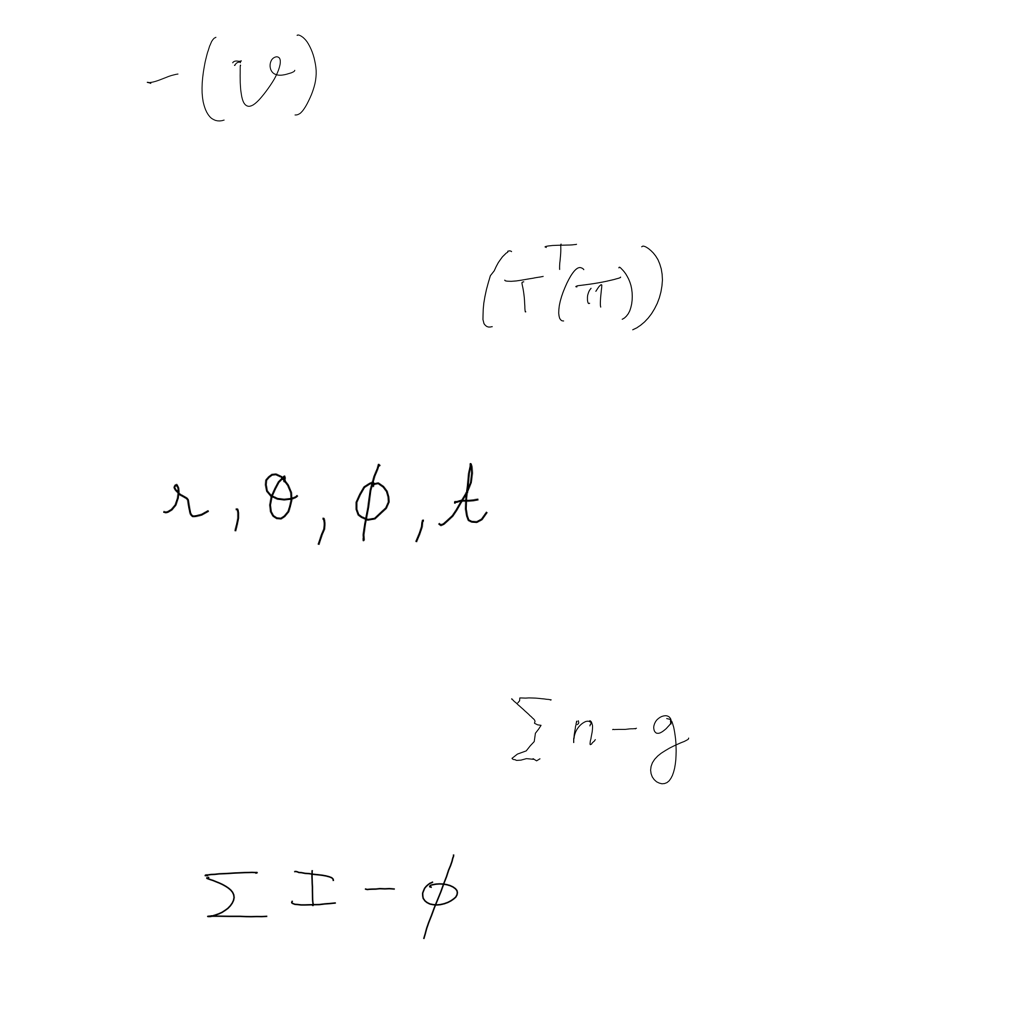 -(v)
(T^T(π))
r, θ, ϕ, t
∑ n - g
∑ I - ϕ